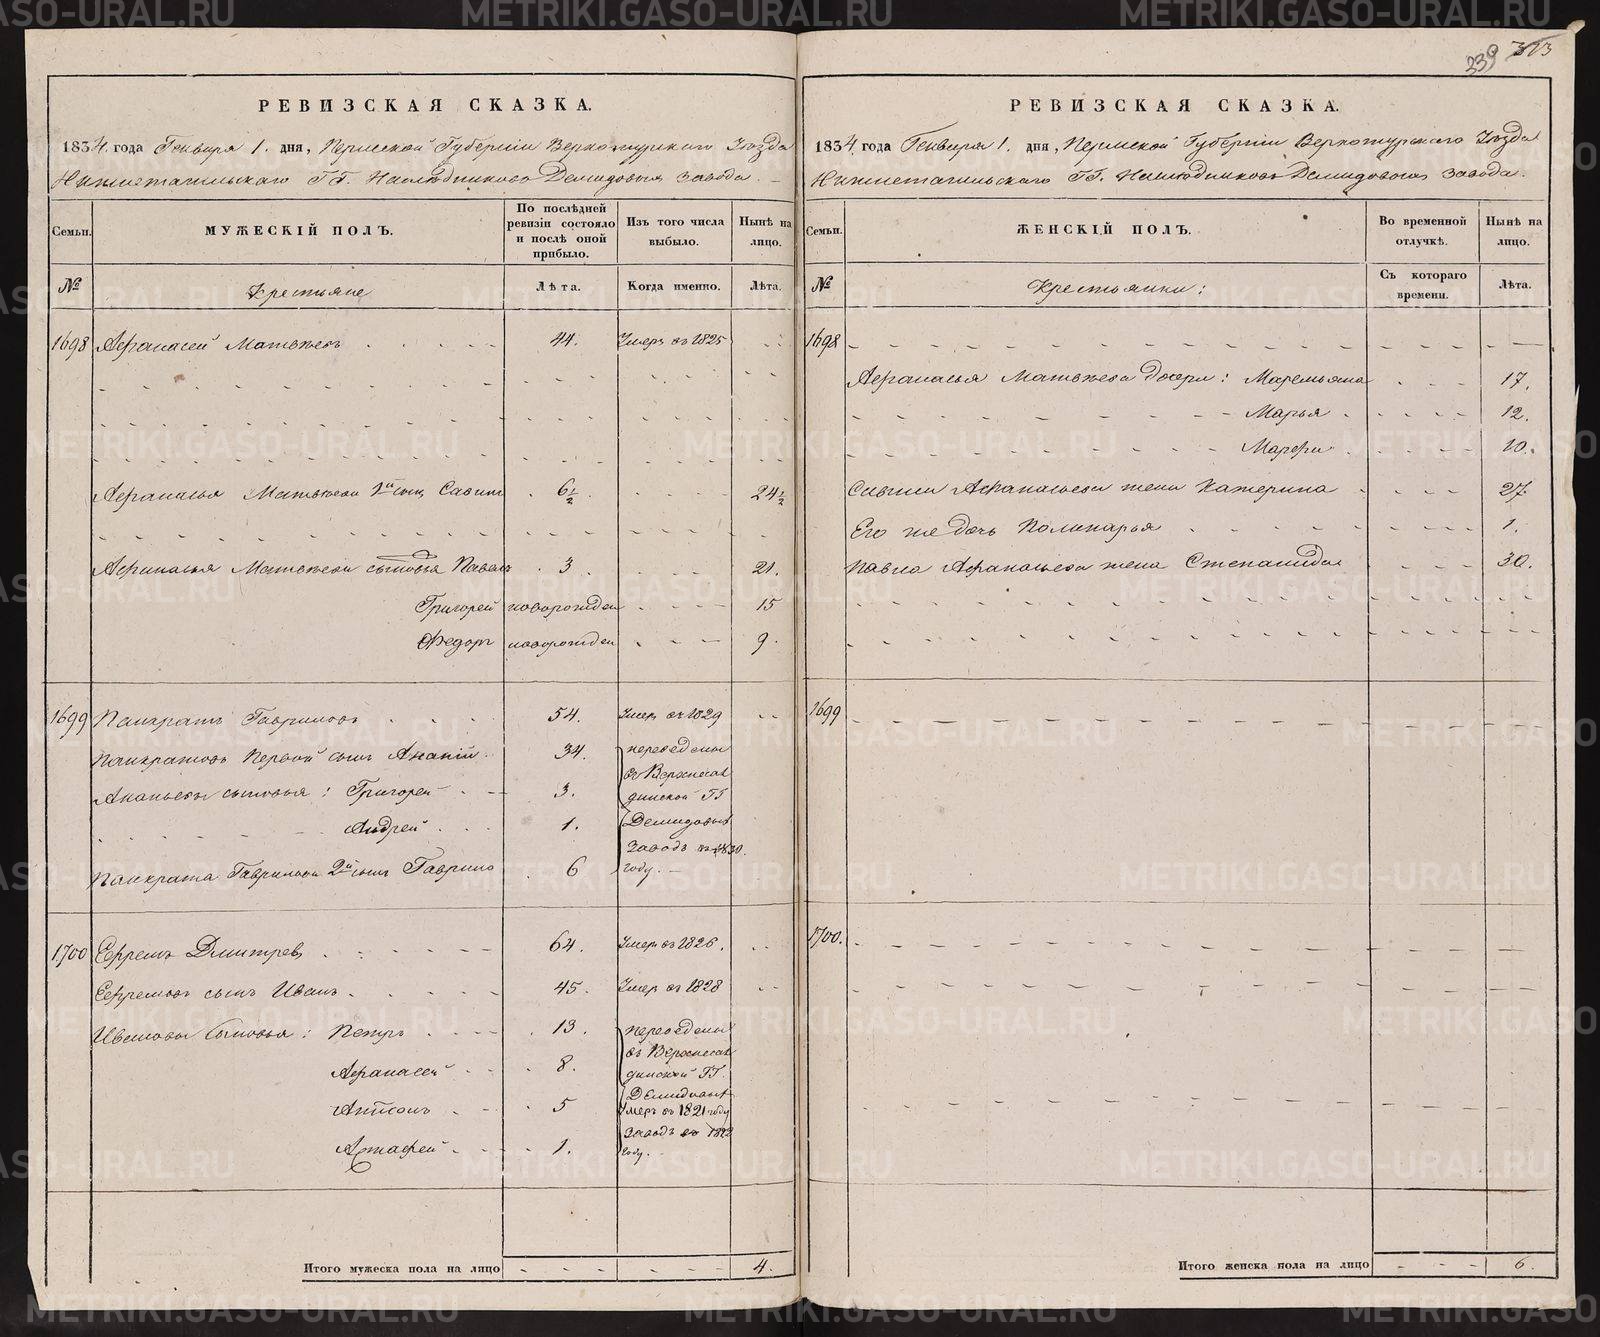 239 313
РЕВИЗСКАЯ СКАЗКА.
1834 года Генваря 1. дня, Пермской Губернiи Верхотурскаго Уѣзда
Нижнетагильскаго ГГ. Наслѣдниковъ Демидовыхъ завода.
Семьи. МУЖЕСКІЙ ПОЛЪ. По послѣдней ревизіи состояло и послѣ оной прибыло. Изъ того числа выбыло. Нынѣ на лицо.
№ Крестьяне Лѣта. Когда именно. Лѣта.
1698 Афанасей Матвѣевъ 44. Умеръ въ 1825
Афанасья Матвѣева 1й сынъ Савинъ 6½ 24½
Афанасья Матвѣева сыновья Павелъ 3 21.
Григорей новорожден 15
Федоръ новорожден 9.
1699 Панкратъ Гавриловъ 54. Умеръ въ 1829
Панкратовъ Первой сынъ Ананій 34. переведены
въ Верхнесал
Ананьевы сыновья: Григорей 3. динской ГГ
Андрей 1. Демидовыхъ
заводъ въ 1830.
Панкрата Гаврилова 2й сынъ Гаврило 6 году.
1700 Ефремъ Дмитрев 64. Умеръ въ 1826.
Ефремовъ сынъ Иванъ 45. Умер въ 1828
Ивановы сыновья: Петръ 13. переведены
въ Верхнесал
Афанасей 8. динской ГГ.
Демидовыхъ
Антонъ 5 Умеръ въ 1821 году
заводъ въ
Астафей 1. году.
Итого мужеска пола на лицо 4.
РЕВИЗСКАЯ СКАЗКА.
1834 года Генваря 1. дня, Пермской Губернiи Верхотурскаго Уѣзда
Нижнетагильскаго ГГ. Наслѣдниковъ Демидовыхъ завода.
Семьи. ЖЕНСКІЙ ПОЛЪ. Во временной отлучкѣ. Нынѣ на лицо.
№ Крестьянки: Съ котораго времени. Лѣта.
1698
Афанасья Матвѣева дочери: Маремьяна 17.
Марья 12.
Марфа 10.
Савина Афанасьева жена Катерина 27.
Его же дочь Поликарья 1.
Павла Афанасьева жена Степанида 30.
1699
1700.
Итого женска пола на лицо 6.
METRIKI.GASO-URAL.RU